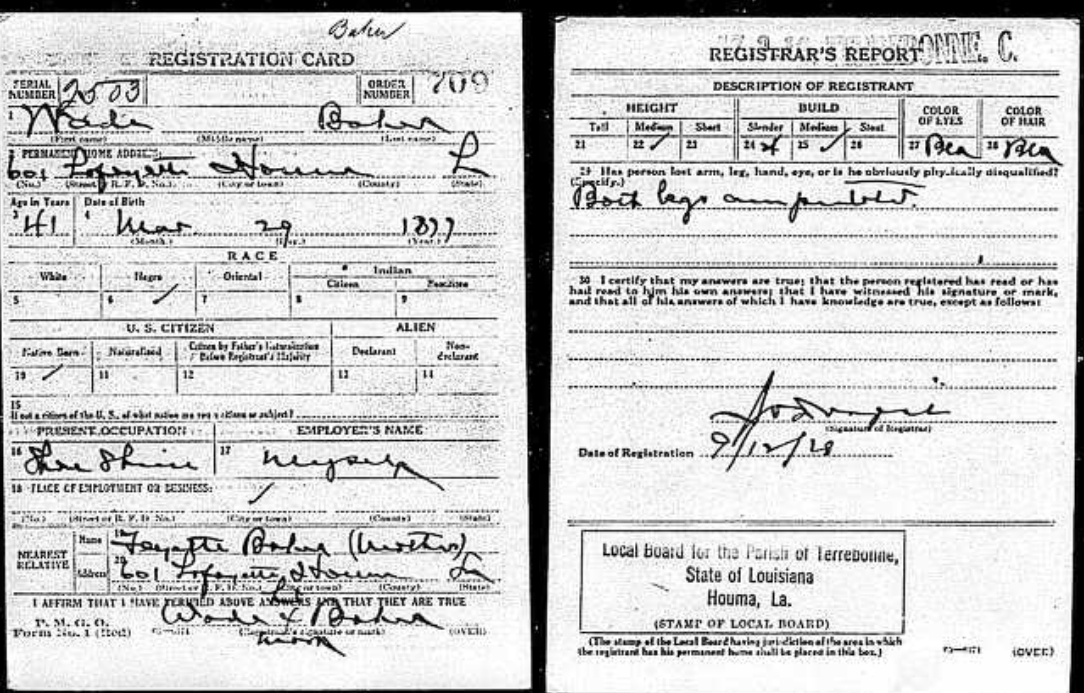 Baker
REGISTRATION CARD
SERIAL NUMBER 2503 ORDER NUMBER 709
1 Wade Baker
(First name) (Middle name) (Last name)
2 PERMANENT HOME ADDRESS:
601 Lafayette Houma L
(No.) (Street or R. F. D. No.) (City or town) (County) (State)
Age in Years Date of Birth
3 41 4 Mar. 29 1877
(Month.) (Day.) (Year.)
RACE
White Negro Oriental Indian
Citizen Noncitizen
5 6 ✓ 7 8 9
U. S. CITIZEN ALIEN
Native Born Naturalized Citizen by Father's Naturalization Before Registrant's Majority Declarant Non-declarant
10 ✓ 11 12 13 14
15
If not a citizen of the U. S., of what nation are you a citizen or subject?
PRESENT OCCUPATION EMPLOYER'S NAME
16 Shoe Shine 17 Myself
18 PLACE OF EMPLOYMENT OR BUSINESS:
(No.) (Street or R. F. D. No.) (City or town) (County) (State)
NEAREST RELATIVE Name 19 Baker (Mother)
Address 20 601 Lafayette St Houma La
(No.) (Street or R. F. D. No.) (City or town) (County) (State)
I AFFIRM THAT I HAVE VERIFIED ABOVE ANSWERS AND THAT THEY ARE TRUE
P. M. G. O.
Form No. 1 (Red) Wade x Baker
(Registrant's signature or mark) (OVER)
mark
REGISTRAR'S REPORT
DESCRIPTION OF REGISTRANT
HEIGHT BUILD COLOR OF EYES COLOR OF HAIR
Tall Medium Short Slender Medium Stout
21 22 ✓ 23 24 25 ✓ 26 27 28
29 Has person lost arm, leg, hand, eye, or is he obviously physically disqualified?
(Specify.)
Both legs amputated.
30 I certify that my answers are true; that the person registered has read or has
had read to him his own answers; that I have witnessed his signature or mark,
and that all of his answers of which I have knowledge are true, except as follows:
(Signature of Registrar)
Date of Registration 9/12/18
Local Board for the Parish of Terrebonne,
State of Louisiana
Houma, La.
(STAMP OF LOCAL BOARD)
(The stamp of the Local Board having jurisdiction of the area in which
the registrant has his permanent home shall be placed in this box.)
(OVER)